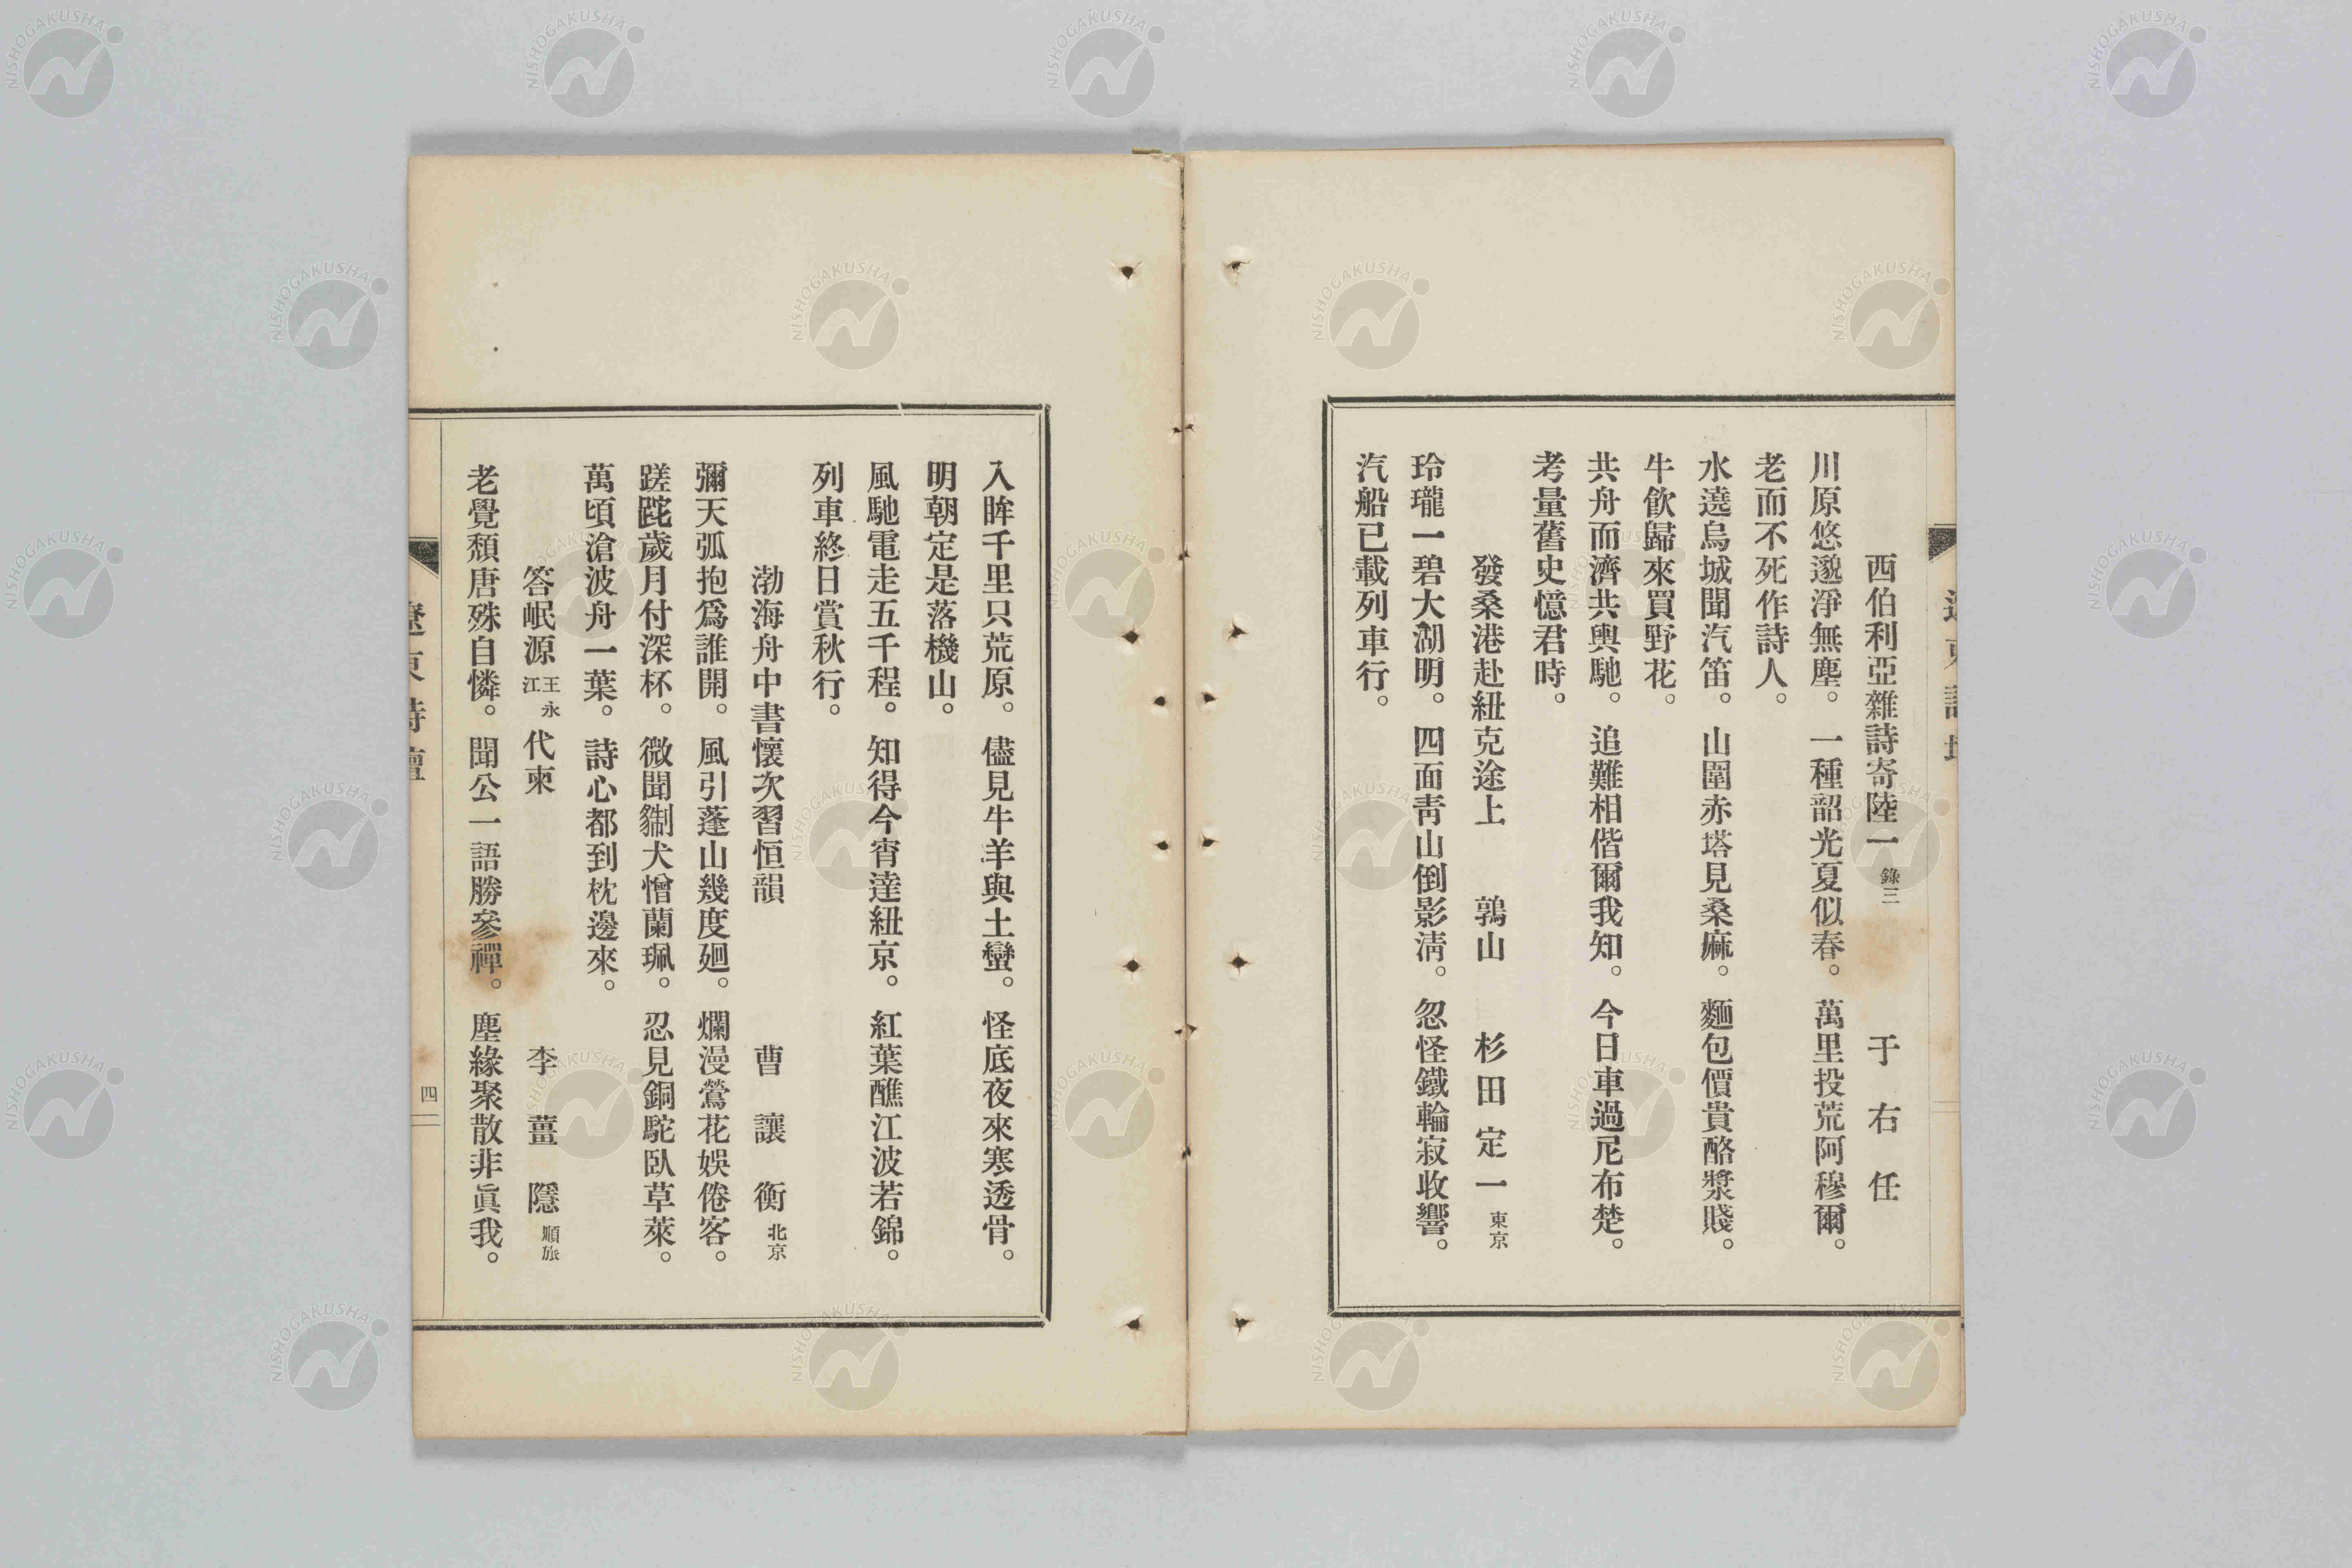 西伯利亞雜詩寄陸一 錄三 于右任
川原悠邈淨無塵。一種韶光夏似春。萬里投荒阿穆爾。
老而不死作詩人。
水遶烏城聞汽笛。山圍赤塔見桑麻。麵包價貴酪漿賤。
牛飮歸來買野花。
共舟而濟共輿馳。追難相偕爾我知。今日車過尼布楚。
考量舊史憶君時。
發桑港赴紐克途上 鶉山 杉田定一 東京
玲瓏一碧大湖明。四面靑山倒影淸。忽怪鐵輪寂收響。
汽船已載列車行。
入眸千里只荒原。儘見牛羊與土蠻。怪底夜來寒透骨。
明朝定是落機山。
風馳電走五千程。知得今宵達紐京。紅葉醮江波若錦。
列車終日賞秋行。
渤海舟中書懷次習恒韻 曹讓衡 北京
彌天弧抱爲誰開。風引蓬山幾度廻。爛漫鶯花娛倦客。
蹉跎歲月付深杯。微聞猘犬憎蘭珮。忍見銅駝臥草萊。
萬頃滄波舟一葉。詩心都到枕邊來。
答岷源 王永江 代柬 李薑隱 旅順
老覺頹唐殊自憐。聞公一語勝參禪。塵緣聚散非眞我。
遼東詩壇
四
NISHOGAKUSHA